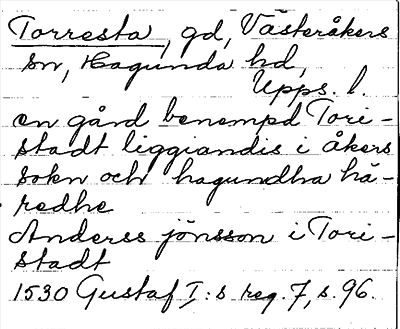 Torresta, gd, Västeråkers
sn, Hagunda hd,
Upps. l.
en gård benempd Tori-
stadt liggiandis i åkers
sokn och hagundha hä-
redhe
Anderss jönsson i Tori-
stadt
1530 Gustaf I:s reg. 7, s. 96.